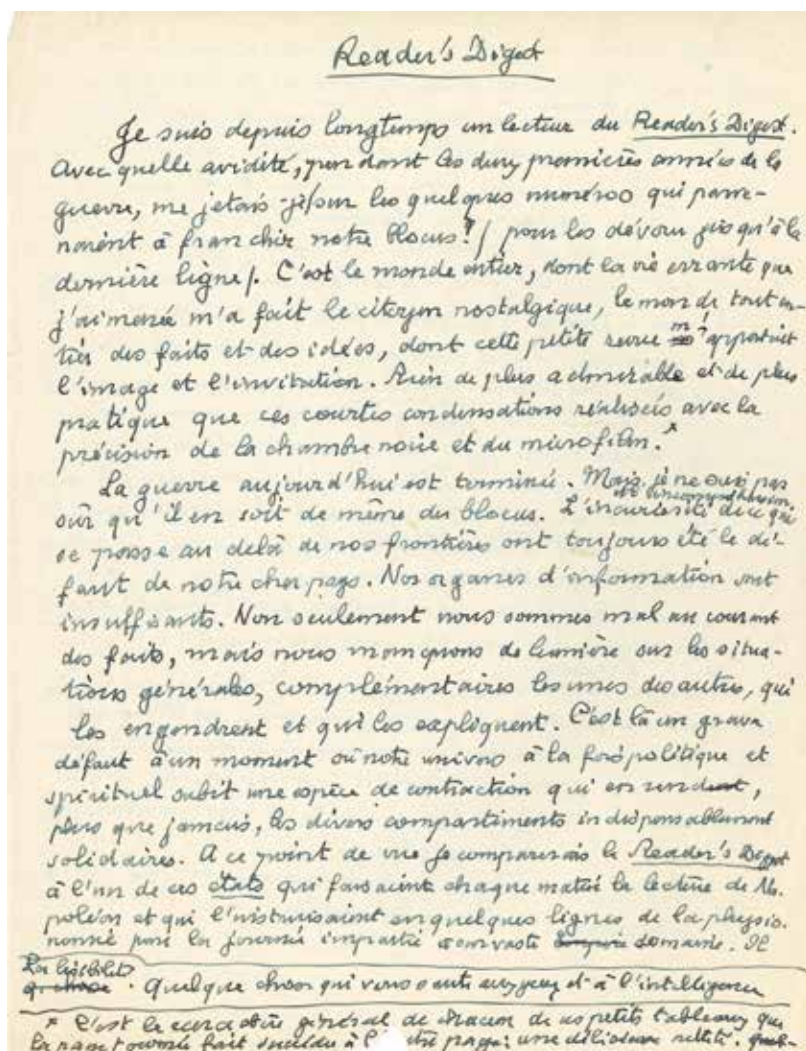 Reader's Digest
Je suis depuis longtemps un lecteur du Reader's Digest.
Avec quelle avidité, pendant les dures premières années de la
guerre, me jetais-je sur les quelques numéros qui parve-
naient à franchir notre blocus! pour les dévorer jusqu'à la
dernière ligne. C'est le monde entier, dont la vie errante que
j'ai menée m'a fait le citoyen nostalgique, le monde tout en-
tier des faits et des idées, dont cette petite revue m'apportait
l'image et l'invitation. Rien de plus admirable et de plus
pratique que ces courtes condensations réalisées avec la
précision de la chambre noire et du microfilm. x
La guerre aujourd'hui est terminée. Mais je ne suis pas
sûr qu'il en soit de même du blocus. L'incuriosité de ce qui
se passe au delà de nos frontières ont toujours été le dé-
faut de notre cher pays. Nos organes d'information sont
insuffisants. Non seulement nous sommes mal au courant
des faits, mais nous manquons de lumière sur les situa-
tions générales, complémentaires les unes des autres, qui
les engendrent et qui les expliquent. C'est là un grave
défaut à un moment où notre univers à la fois politique et
spirituel subit une espèce de contraction qui en rend,
plus que jamais, les divers compartiments indispensablement
solidaires. A ce point de vue je comparerais le Reader's Digest
à l'un de ces états qui faisaient chaque matin la lecture de Na-
poléon et qui l'instruisaient en quelques lignes de la physio-
nomie pour la journée impartie à son vaste domaine. Il
La lisibilité
Quelque chose qui vous saute aux yeux et à l'intelligence
x C'est le caractère général de chacun de ces petits tableaux que
la page tournée fait succéder à l'autre page: une délicieuse netteté.